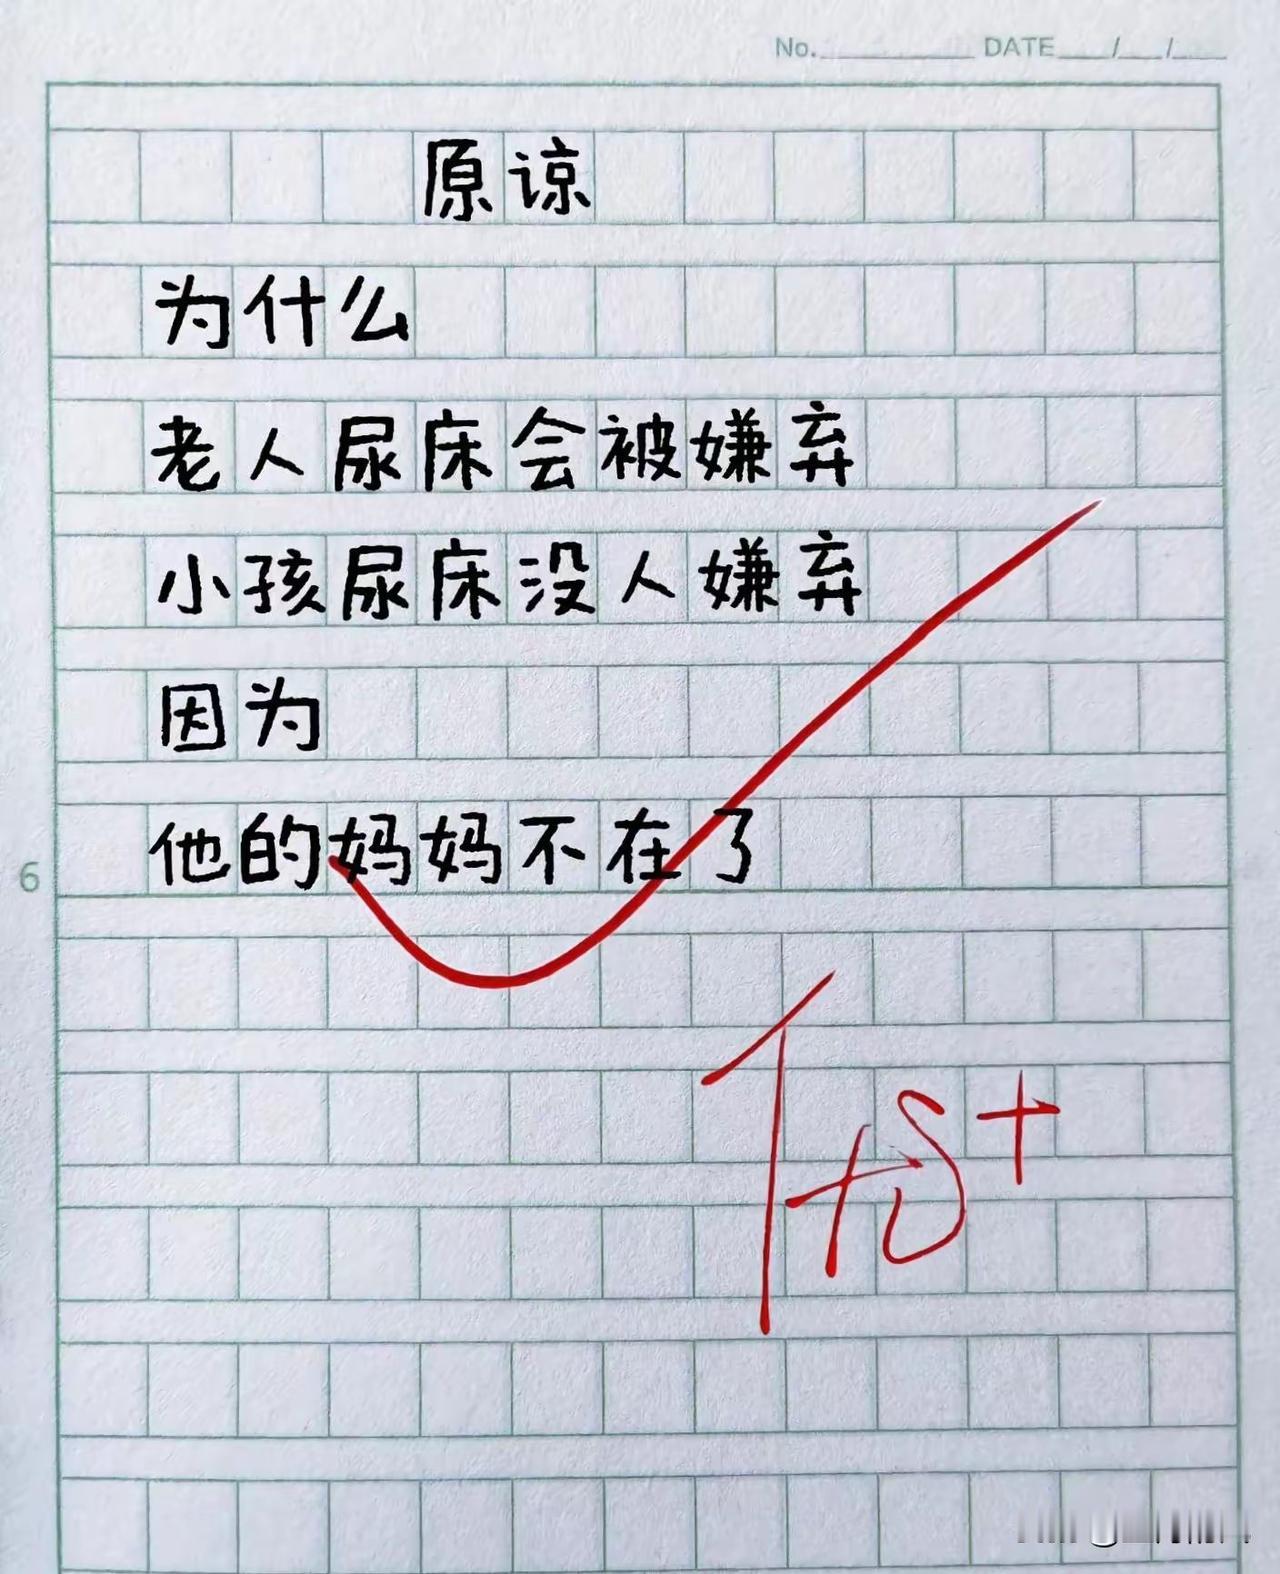 No. DATE / /
原谅
为什么
老人尿床会被嫌弃
小孩尿床没人嫌弃
因为
他的妈妈不在了
6